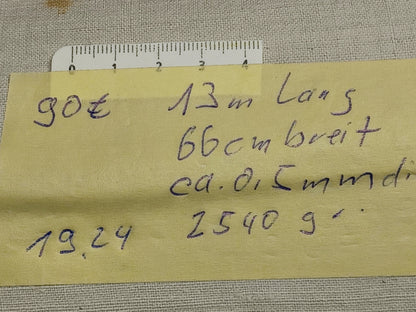 0 1 2 3 4
90€ 13m Lang
66cm breit
ca. 0,5mm di
19.24 2540 g